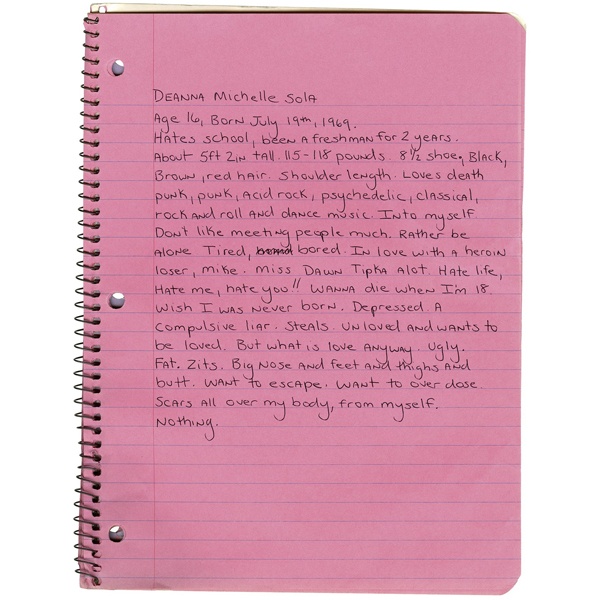 DEANNA Michelle Sola
Age 16, Born July 19th, 1969.
Hates school, been a freshman for 2 years.
About 5ft 2in tall. 115-118 pounds. 8½ shoe, Black,
Brown, red hair. Shoulder length. Loves death
punk, punk, acid rock, psychedelic, classical,
rock and roll and dance music. Into myself
Don't like meeting people much. Rather be
alone Tired, bored. In love with a heroin
loser, mike. miss Dawn Tipka alot. Hate life,
Hate me, hate you!! Wanna die when I'm 18.
Wish I was never born. Depressed. A
compulsive liar. Steals. Unloved and wants to
be loved. But what is love anyway. Ugly.
Fat. Zits. Big nose and feet and thighs and
butt. Want to escape. Want to over dose.
Scars all over my body, from myself.
Nothing.